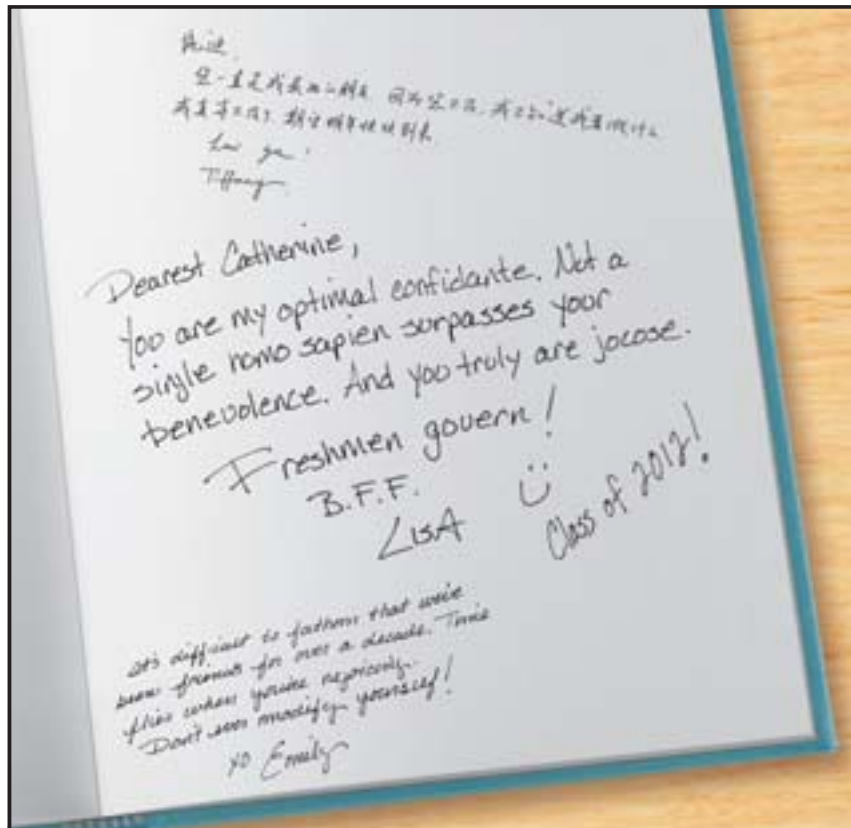 一直是我最好的朋友
Tiffany
Dearest Catherine,
You are my optimal confidante. Not a
single homo sapien surpasses your
benevolence. And you truly are jocose.
Freshmen govern!
B.F.F.
LisA
Class of 2012!
It's difficult to fathom that we've
been friends for over a decade. Time
flies when you're rejoicing.
Don't ever modify yourself!
xo Emily